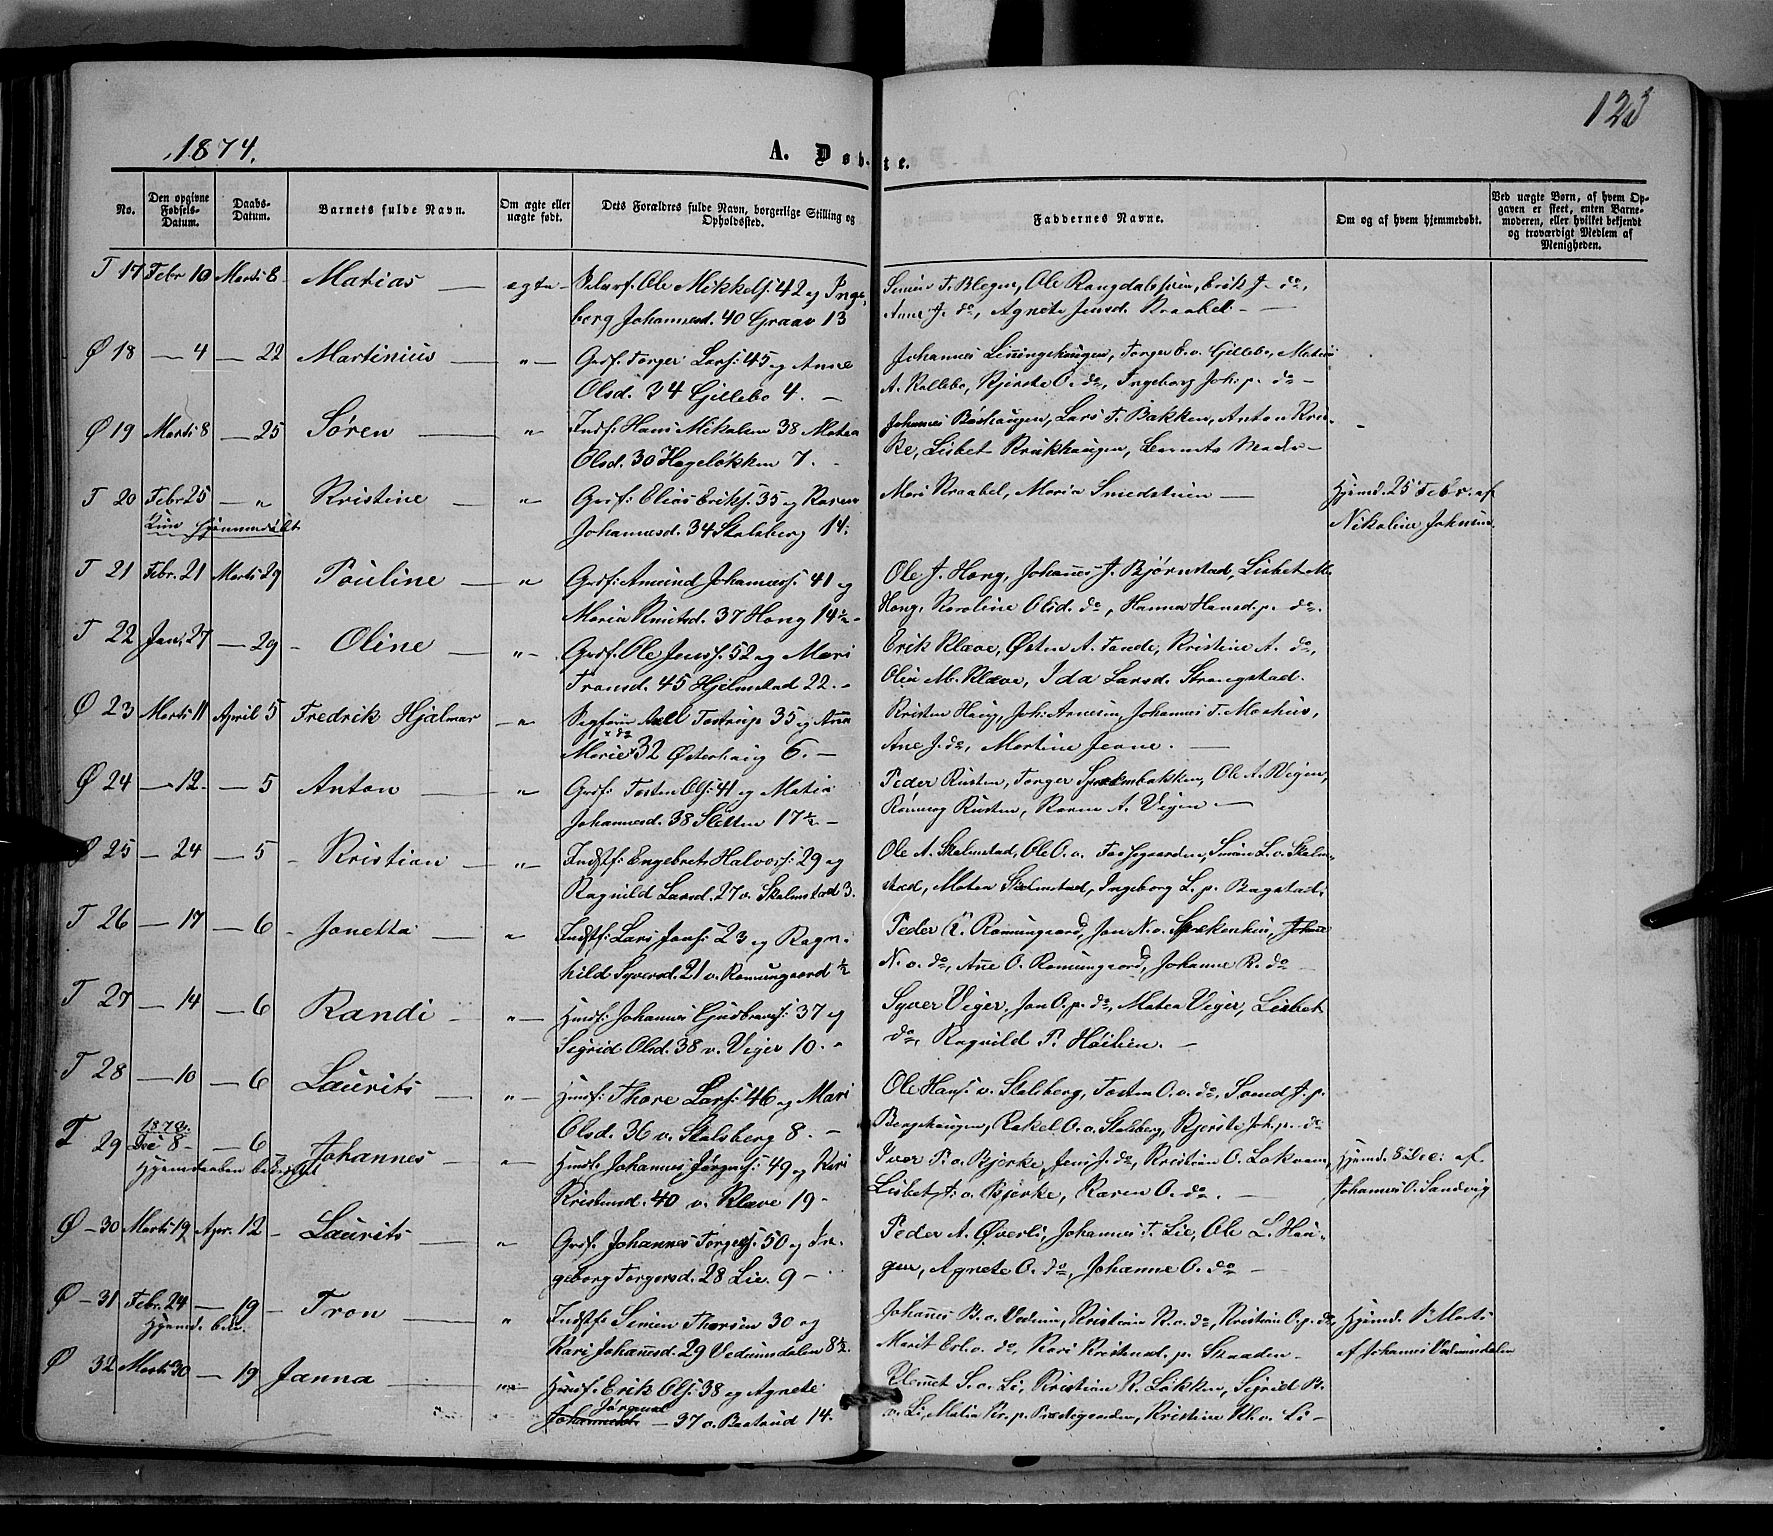 123
1874.
A. Døbte.
No.
Den opgivne Fødsels-Datum.
Daabs-Datum.
Barnets fulde Navn.
Om ægte eller uægte født.
Dets Forældres fulde Navn, borgerlige Stilling og Opholdssted.
Faddernes Navne.
Om og af hvem hjemmedøbt.
Ved uægte Børn, af hvem Opgaven er skeet, enten Barnemoderen, eller hvilket bekjendt og troværdigt Medlem af Menigheden.
T 17 Febr 10 Marts 8 Matias — ægte Ole Mikkels: 42 og Inge-
berg Johannesd. 40 Graav 13
Simen T. Blegen, Ole Rangdalsstuen, Erik J. do,
Anne J. do, Agnete Jensd. Kraabel. —
Ø 18 — 4 — 22 Martinius — " — Grdf: Torger Lars: 45 og Anne
Olsd. 34 Gillebo 4. —
Johannes Linningshaugen, Torger E. v. Gillebo, Matias
A. Kallebo, Kjersti O. do, Ingeborg Joh. p. do —
Ø 19 Marts 8 — 25 Søren — " Indf: Hans Mikalsen 38 Matea
Olsd. 30 Hageløkken 7. -
Johannes Baashaugen, Lars T. Bakken, Anton Kruk-
ke, Lisbet Krukhaugen, Barnets Moder —
T 20 Febr 25 — " Kristine — " Grdf: Elias Eriks: 35 og Karen
Kun Hjemmedøbt
Johannesd. 34 Skalsberg 14.
Mari Kraabel, Maria Smedstuen —
Hjemd. 25 Febr. af
Nikoline Johnsen
T 21 Febr. 21 Marts 29 Pouline — " Grdf: Amund Johanness: 41 og
Maria Knutsd. 37 Hong 14½ -
Ole J. Hong, Johannes J. Bjørnstad, Lisbet M.
Hong, Karoline Olsd. do, Hanna Hansd. p. do.
T 22 Jan. 27 — 29 - Oline — " - Grdf: Ole Jens: 52 og Mari
Tronsd. 45 Hjelmstad 22. -
Erik Klæve, Østen A. Tande, Kristine A. do,
Olia M. Klæve, Ida Larsd. Strangstad.
Ø 23 Marts 11 April 5 Fredrik Hjalmar " Aall Tostrup 35 og Anna
Marie 32 Østerhaug 6. —
Kristen Haug, Joh: Arnesen, Johannes T. Morhus,
Ane J. do, Martine Jevne. —
Ø 24 — 12 — 5 Anton — " Grdf: Tosten Ols: 41 og Matia
Johannesd. 38 Sletten 17½ —
Peder Rusten, Torger Sprækenbakken, Ole A. Vigen,
Rønnog Rusten, Karen A. Vigen —
Ø 25 — 24 — 5 - Kristian — " Indstf: Engebret Halvors: 29 og
Ragnild Larsd. 27 v. Skalmstad 3.
Ole A. Skalmstad, Ole O. v. Fossegaarden, Simen L. v. Skalm-
stad, Matea Skalmstad, Ingeborg L. p. Bagstad.
T 26 — 17 — 6 - Jonetta — " Indstf: Lars Jons: 23 og Ragn-
hild Syversd. 21 v. Romungaard ½
Peder Romungaard, Jon N. v. Sprækenhus, Johanne
N. v. do, Ane O. Romungaard, Johanne R. do
T 27 — 14 — 6 Randi — " — Husmf: Johannes Gudbrands: 37 og
Sigrid Olsd. 38 v. Veger 10. -
Syver Veger, Jon O. p. do, Matea Veger, Lisbet
do, Ragnild P. Høistuen. —
T 28 — 10 — 6 Laurits — " — Husmf: Thore Lars: 46 og Mari
Olsd. 36 v. Skalsberg 8. —
Ole Hans: v. Skalsberg, Tosten O. v. do, Svend J. p.
Bergehaugen, Rakel O. v. Skalsberg, Kjersti Joh. p. do
T 29 1873. Dec 8 — 6 Johannes — " Husmf: Johannes Jørgens: 49 og Kari
Hjemdaaben bekræftet
Kristensd. 40 v. Klæve 19 -
Iver P. v. Bjerke, Jens J. do, Kristian O. Lokvam,
Lisbet J. v. Bjerke, Karen O. do. —
Hjemd. 8 Dec. af
Johannes O. Sandvig
Ø - 30 Marts 19 Apr. 12 - Laurits — " Grdf: Johannes Torgers: 50 og In-
geborg Torgersd. 28 Lie 9 -
Peder A. Øverli, Johannes T. Lie, Ole L. Hau-
gen, Agnete O. do, Johanne O. do —
Ø - 31 Febr. 24 — 19 - Tron — " Indstf: Simen Thorsen 30 og
Hjemd. bekr.
Kari Johannesd. 29 Vedumsdalen 8½.
Johannes B. v. Vedum, Kristian K. v. do, Kristian O. p. do,
Marit Erl. v. do, Kari Kristensd. p. Skaaden —
Hjemd. 1 Marts
af Johannes Vedumsdalen
Ø 32 Marts 30 — 19 Janna — " Husmf: Erik Ols: 38 og Agnete
Jørgensd.
Johannesd. — 37 v. Baatrud 14.
Klemet S. v. Li, Kristian K. Løkken, Sigrid B.
v. Li, Matia Kr. p. Prestegaarden, Kristine Kl. v. Li —